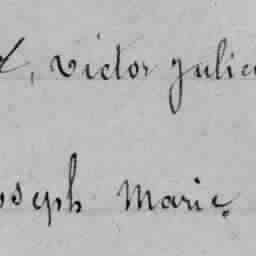 , Victor Julie
oseph Marie.